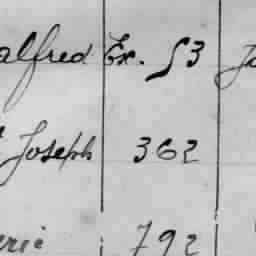 alfred Ex. 53 Jo
Joseph 362
erie 792